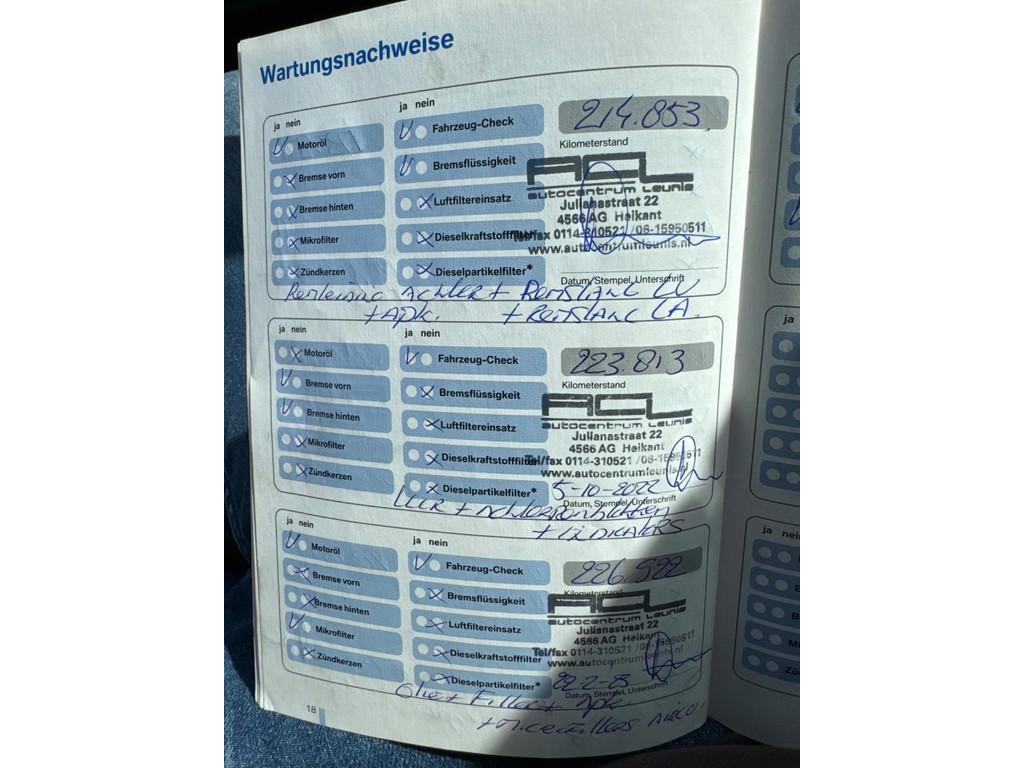 Wartungsnachweise
ja nein
ja nein
214.853
Motoröl
Fahrzeug-Check
Kilometerstand
Bremse vorn
Bremsflüssigkeit
ACL
autocentrum Leunis
Bremse hinten
Luftfiltereinsatz
Julianastraat 22
4566 AG Heikant
Mikrofilter
Dieselkraftstofffilter
Tel/fax 0114-310521 /06-15950511
www.autocentrumleunis.nl
Zündkerzen
Dieselpartikelfilter*
Datum, Stempel, Unterschrift
Remleiding achter + Remslang LV
+ Apk. + Remslang LA.
ja nein
ja nein
223.813
Motoröl
Fahrzeug-Check
Kilometerstand
Bremse vorn
Bremsflüssigkeit
ACL
autocentrum Leunis
Bremse hinten
Luftfiltereinsatz
Julianastraat 22
4566 AG Heikant
Mikrofilter
Dieselkraftstofffilter
Tel/fax 0114-310521 /06-15950511
www.autocentrumleunis.nl
Zündkerzen
Dieselpartikelfilter*
5-10-2022
Datum, Stempel, Unterschrift
+ indicators
ja nein
ja nein
226.922
Motoröl
Fahrzeug-Check
Kilometerstand
Bremse vorn
Bremsflüssigkeit
ACL
autocentrum Leunis
Bremse hinten
Luftfiltereinsatz
Julianastraat 22
4566 AG Heikant
Mikrofilter
Dieselkraftstofffilter
Tel/fax 0114-310521 /06-15950511
www.autocentrumleunis.nl
Zündkerzen
Dieselpartikelfilter*
22-2-23
Datum, Stempel, Unterschrift
Olie + Filter + Apk
18
ja
ja nein